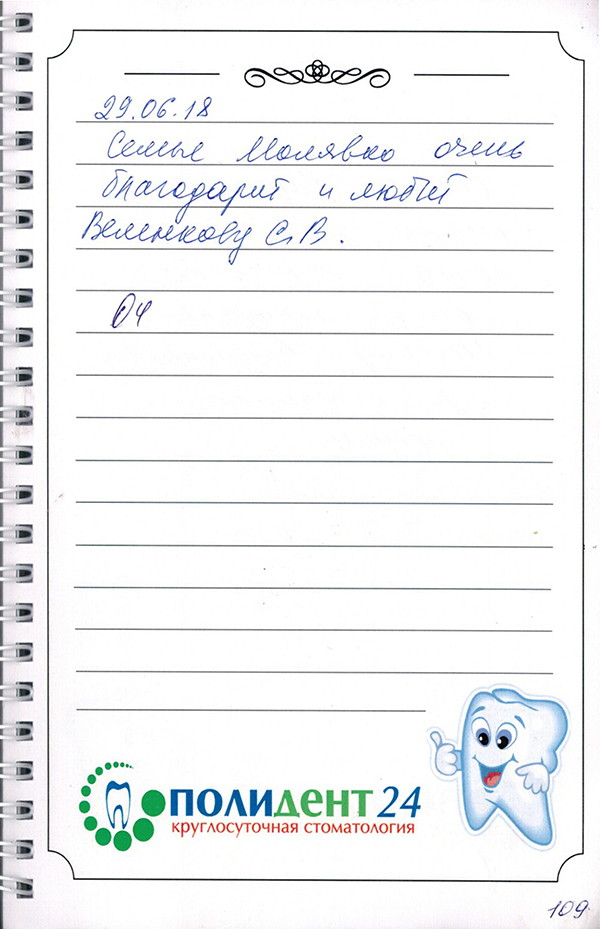 29.06.18
Семье Молявко очень
благодарит и любит
Веленкову С.В.
04
ПОЛИДЕНТ 24
круглосуточная стоматология
109